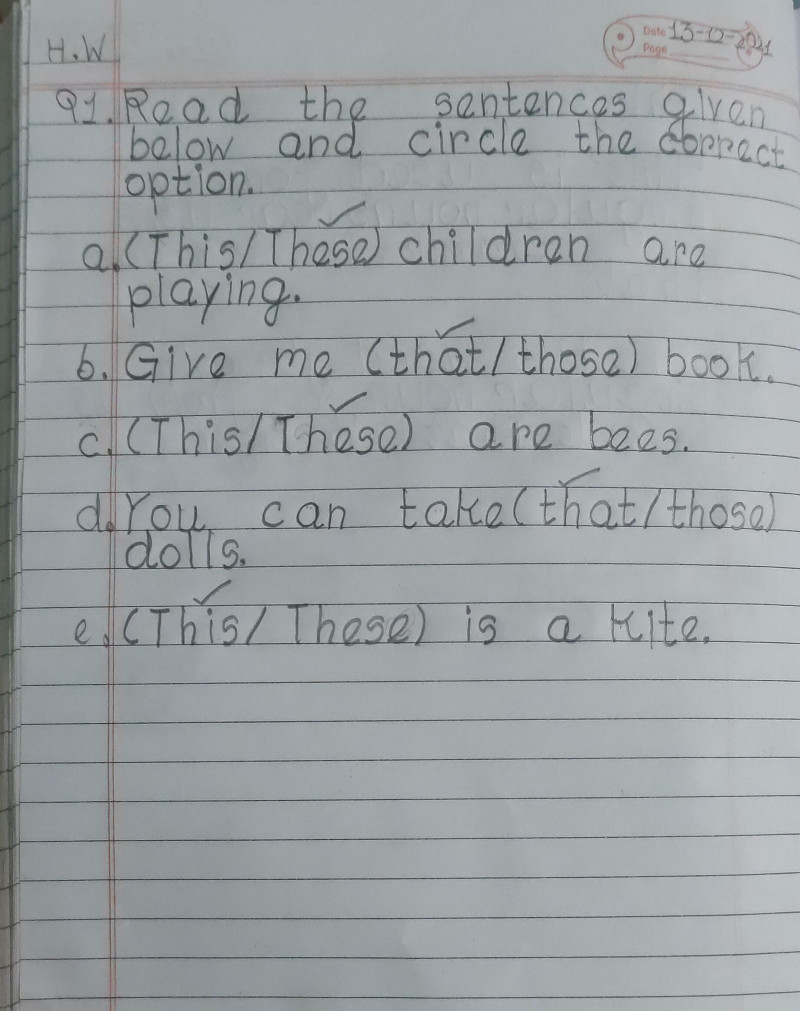 H.W
Date 13-12-2021
Page
Q1. Read the sentences given
below and circle the correct
option.
a. (This/These) children are
playing.
b. Give me (that/those) book.
c. (This/These) are bees.
d. You can take (that/those)
dolls.
e. (This/These) is a kite.